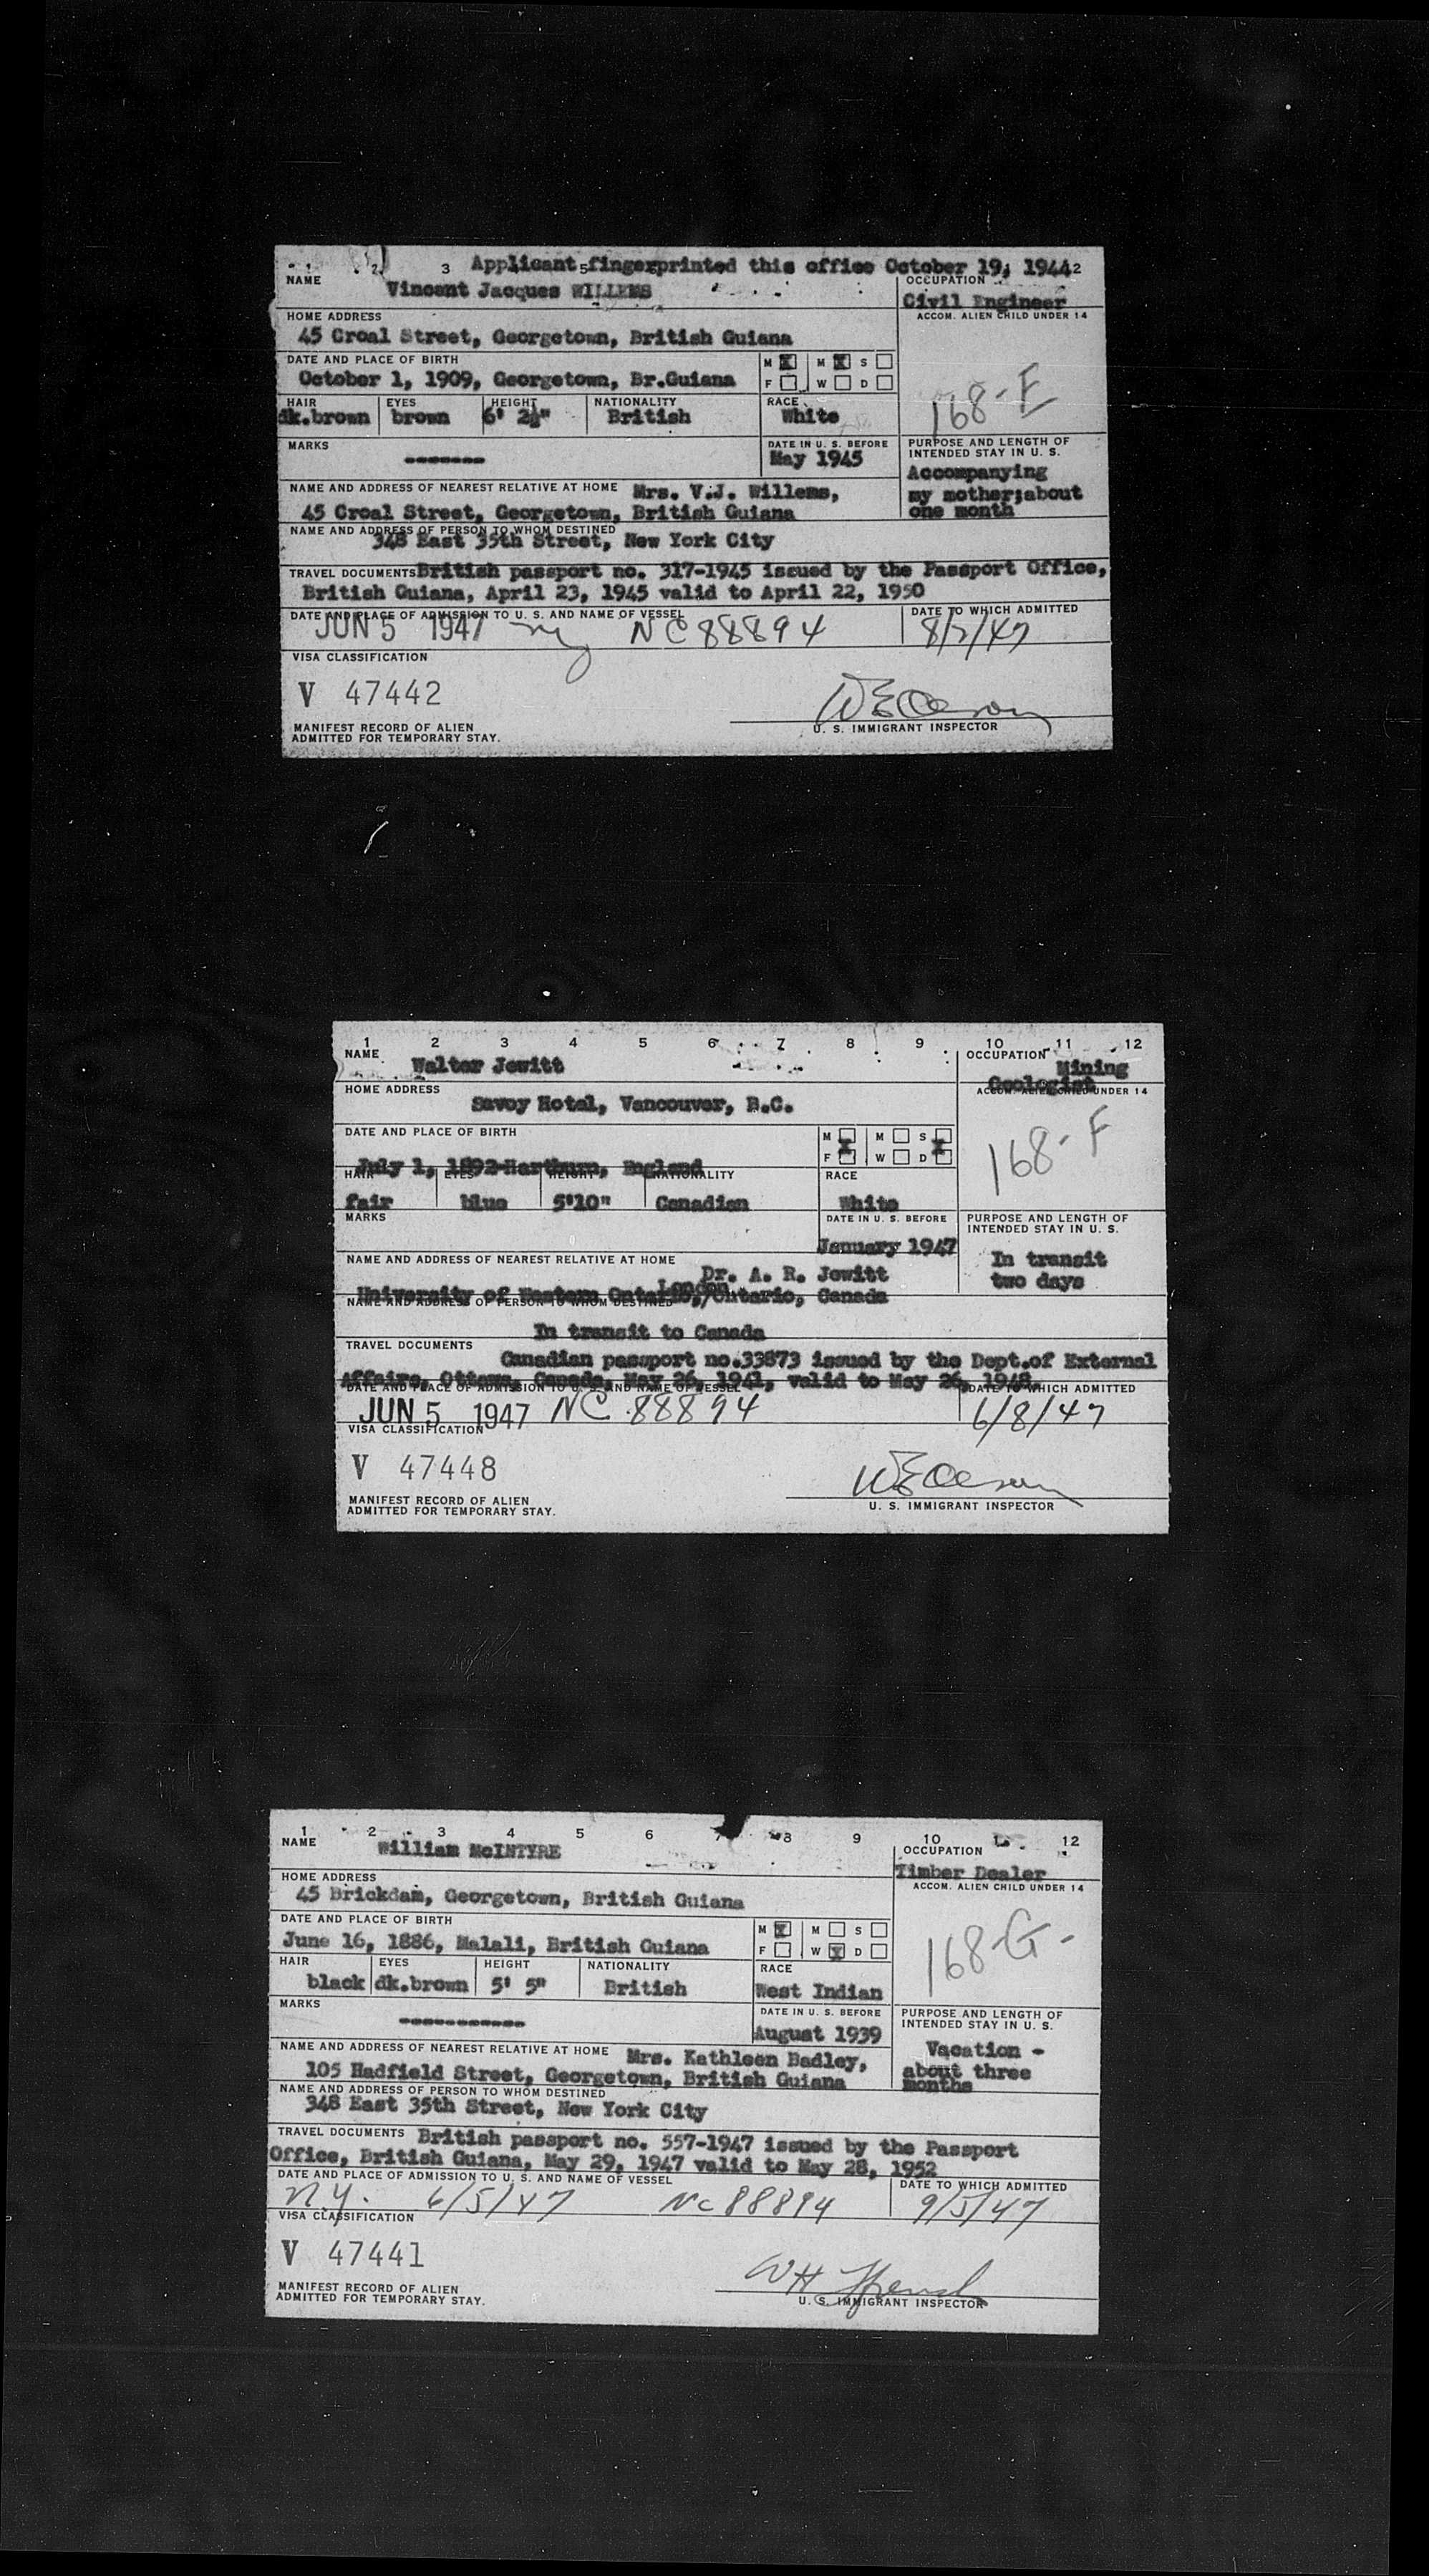 1 2 3 Applicant 5 fingerprinted this office October 19, 1944 2
NAME Vincent Jacques WILLEMS OCCUPATION Civil Engineer
HOME ADDRESS ACCOM. ALIEN CHILD UNDER 14
45 Croal Street, Georgetown, British Guiana
DATE AND PLACE OF BIRTH M X M X S
October 1, 1909, Georgetown, Br.Guiana F W D
168-F
HAIR EYES HEIGHT NATIONALITY RACE
dk.brown brown 6' 2½" British White
MARKS DATE IN U. S. BEFORE PURPOSE AND LENGTH OF INTENDED STAY IN U. S.
------- May 1945 Accompanying my mother;about one month
NAME AND ADDRESS OF NEAREST RELATIVE AT HOME Mrs. V.J. Willems,
45 Croal Street, Georgetown, British Guiana
NAME AND ADDRESS OF PERSON TO WHOM DESTINED
348 East 35th Street, New York City
TRAVEL DOCUMENTS British passport no. 317-1945 issued by the Passport Office,
British Guiana, April 23, 1945 valid to April 22, 1950
DATE AND PLACE OF ADMISSION TO U. S. AND NAME OF VESSEL DATE TO WHICH ADMITTED
JUN 5 1947 ny NC 88894 8/2/47
VISA CLASSIFICATION
V 47442
MANIFEST RECORD OF ALIEN U. S. IMMIGRANT INSPECTOR
ADMITTED FOR TEMPORARY STAY.
1 2 3 4 5 6 7 8 9 10 11 12
NAME Walter Jewitt OCCUPATION Mining Geologist
HOME ADDRESS ACCOM. ALIEN CHILD UNDER 14
Savoy Hotel, Vancouver, B.C.
DATE AND PLACE OF BIRTH M X M S X
July 1, 1892-Hartburn, England F W D
168-F
HAIR EYES HEIGHT NATIONALITY RACE
fair blue 5'10" Canadian White
MARKS DATE IN U. S. BEFORE PURPOSE AND LENGTH OF INTENDED STAY IN U. S.
January 1947 In transit two days
NAME AND ADDRESS OF NEAREST RELATIVE AT HOME
Dr. A. R. Jewitt
London
University of Western Ontario,/Ontario, Canada
NAME AND ADDRESS OF PERSON TO WHOM DESTINED
In transit to Canada
TRAVEL DOCUMENTS
Canadian passport no.33873 issued by the Dept.of External
Affairs, Ottawa, Canada, May 26, 1941, valid to May 26, 1948.
DATE AND PLACE OF ADMISSION TO U. S. AND NAME OF VESSEL DATE TO WHICH ADMITTED
JUN 5 1947 NC 88894 6/8/47
VISA CLASSIFICATION
V 47448
MANIFEST RECORD OF ALIEN U. S. IMMIGRANT INSPECTOR
ADMITTED FOR TEMPORARY STAY.
1 2 3 4 5 6 7 8 9 10 12
NAME William McINTYRE OCCUPATION Timber Dealer
HOME ADDRESS ACCOM. ALIEN CHILD UNDER 14
45 Brickdam, Georgetown, British Guiana
DATE AND PLACE OF BIRTH M X M S
June 16, 1886, Malali, British Guiana F W X D
168-G-
HAIR EYES HEIGHT NATIONALITY RACE
black dk.brown 5' 5" British West Indian
MARKS DATE IN U. S. BEFORE PURPOSE AND LENGTH OF INTENDED STAY IN U. S.
----------- August 1939 Vacation - about three months
NAME AND ADDRESS OF NEAREST RELATIVE AT HOME Mrs. Kathleen Badley,
105 Hadfield Street, Georgetown, British Guiana
NAME AND ADDRESS OF PERSON TO WHOM DESTINED
348 East 35th Street, New York City
TRAVEL DOCUMENTS British passport no. 557-1947 issued by the Passport
Office, British Guiana, May 29, 1947 valid to May 28, 1952
DATE AND PLACE OF ADMISSION TO U. S. AND NAME OF VESSEL DATE TO WHICH ADMITTED
n.y. 6/5/47 Nc 88894 9/5/47
VISA CLASSIFICATION
V 47441
MANIFEST RECORD OF ALIEN U. S. IMMIGRANT INSPECTOR
ADMITTED FOR TEMPORARY STAY.